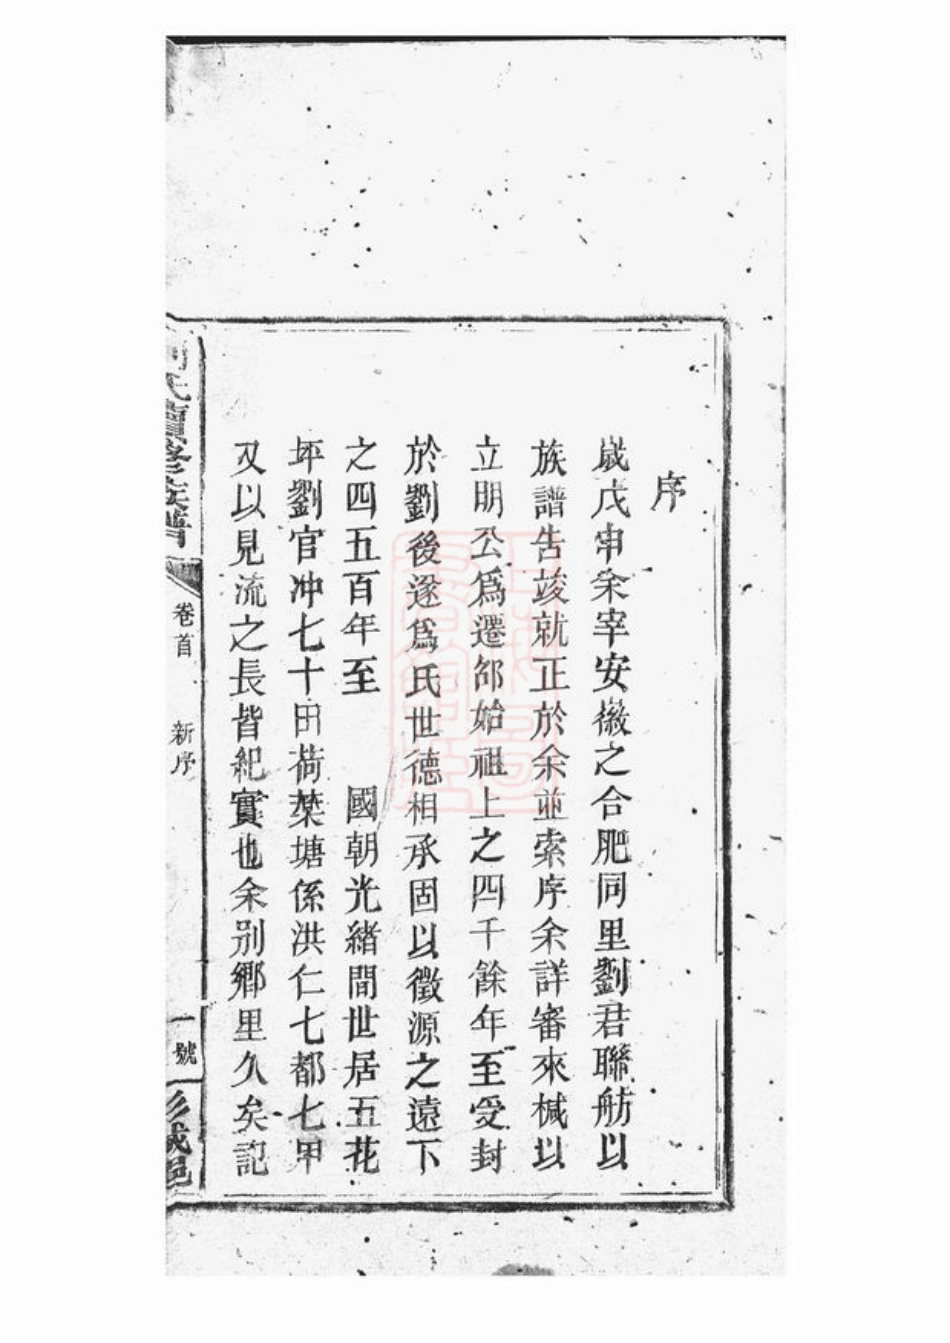 序
歲戊申余宰安徽之合肥同里劉君聯舫以
族譜告竣就正於余並索序余詳審來椷以
立明公爲遷邵始祖上之四千餘年至受封
於劉後遂爲氏世德相承固以徵源之遠下
之四五百年至 國朝光緒間世居五花
坪劉官冲七十田荷葉塘係洪仁七都七甲
又以見流之長皆紀實也余别鄉里久矣記
劉氏續修族譜
卷首 新序
一號
彭城邑